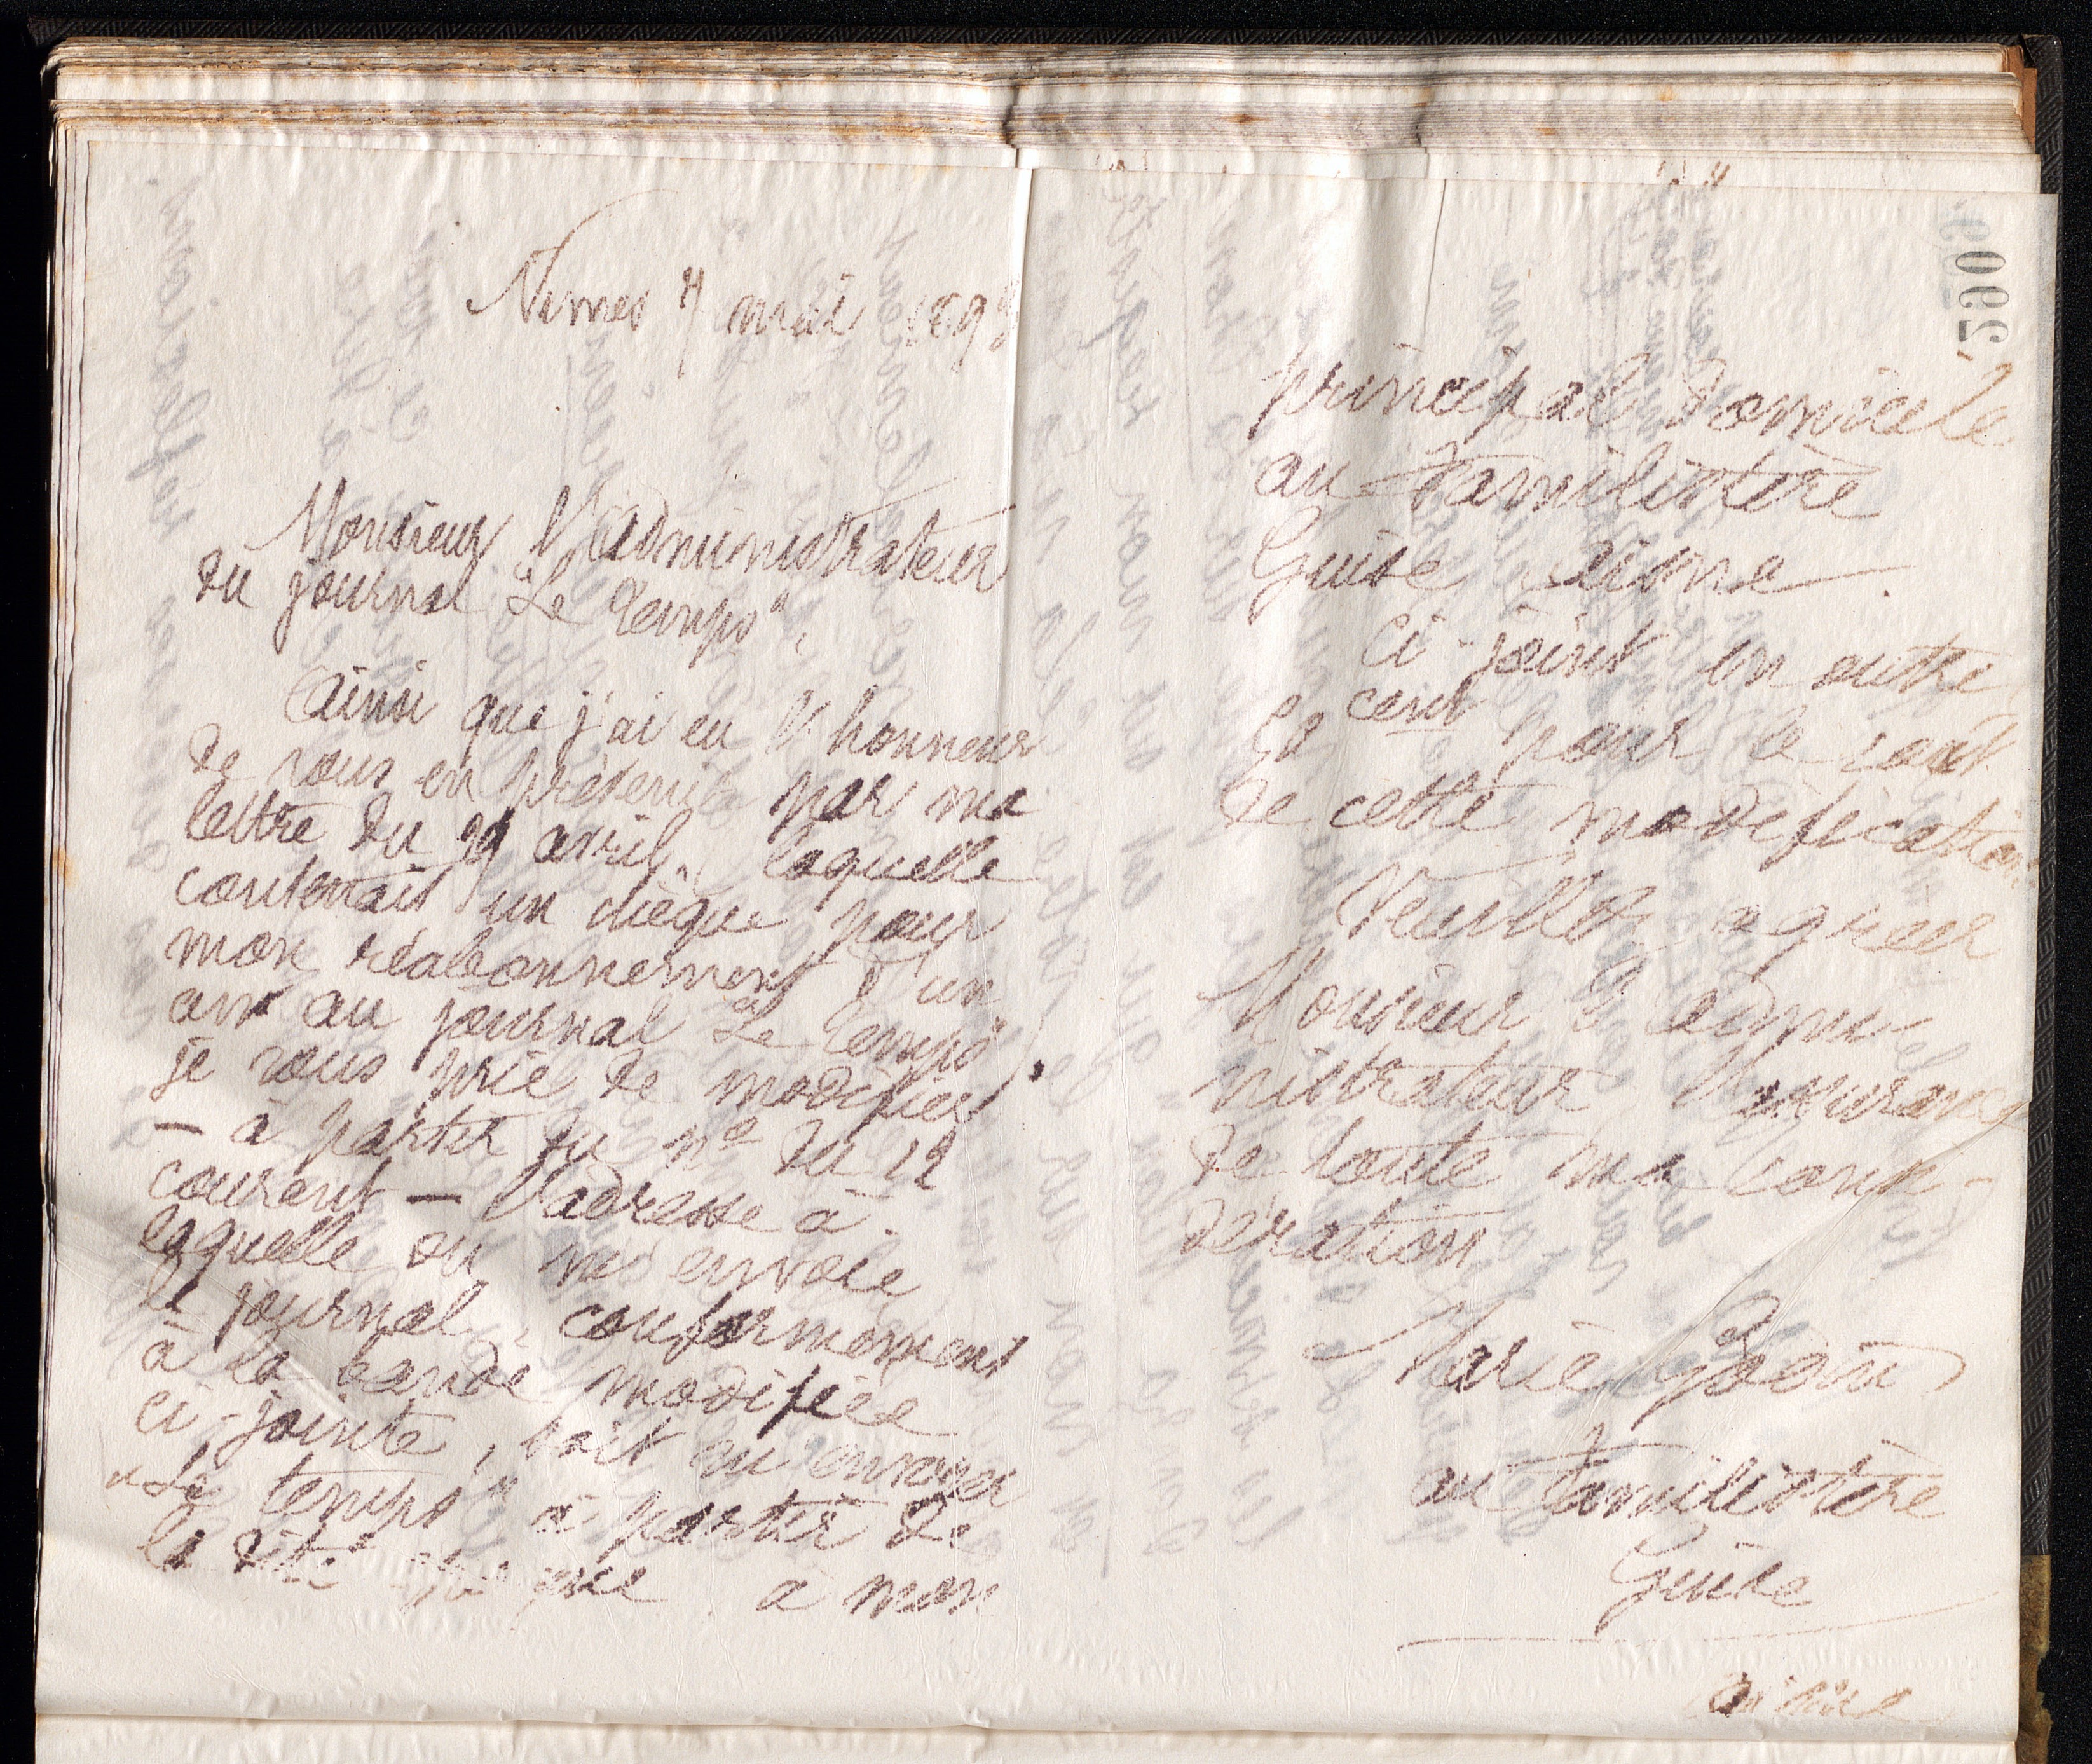 Nimes 7 mai 189
Monsieur l'administrateur
du journal "Le Temps",
Ainsi que j'ai eu l'honneur
de vous en prévenir par ma
lettre du 29 avril, laquelle
contenait un chèque pour
mon réabonnement d'un
an au journal "Le Temps",
je vous prie de modifier
— à partir du n° du 12
courant — l'adresse à
laquelle on m'envoie
le journal, conformément
à la bande modifiée
ci-jointe, soit m'envoyer
"Le temps" à partir de
la dite à mon
principal domicile
au Familistère
Guise Aisne.
Ci-joint en outre
60 cent pour le coût
de cette modification
Veuillez agréer
Monsieur l'admi-
nistrateur l'assurance
de toute ma consi-
dération
Marie Godin
au Familistère
Guise
Aisne
002